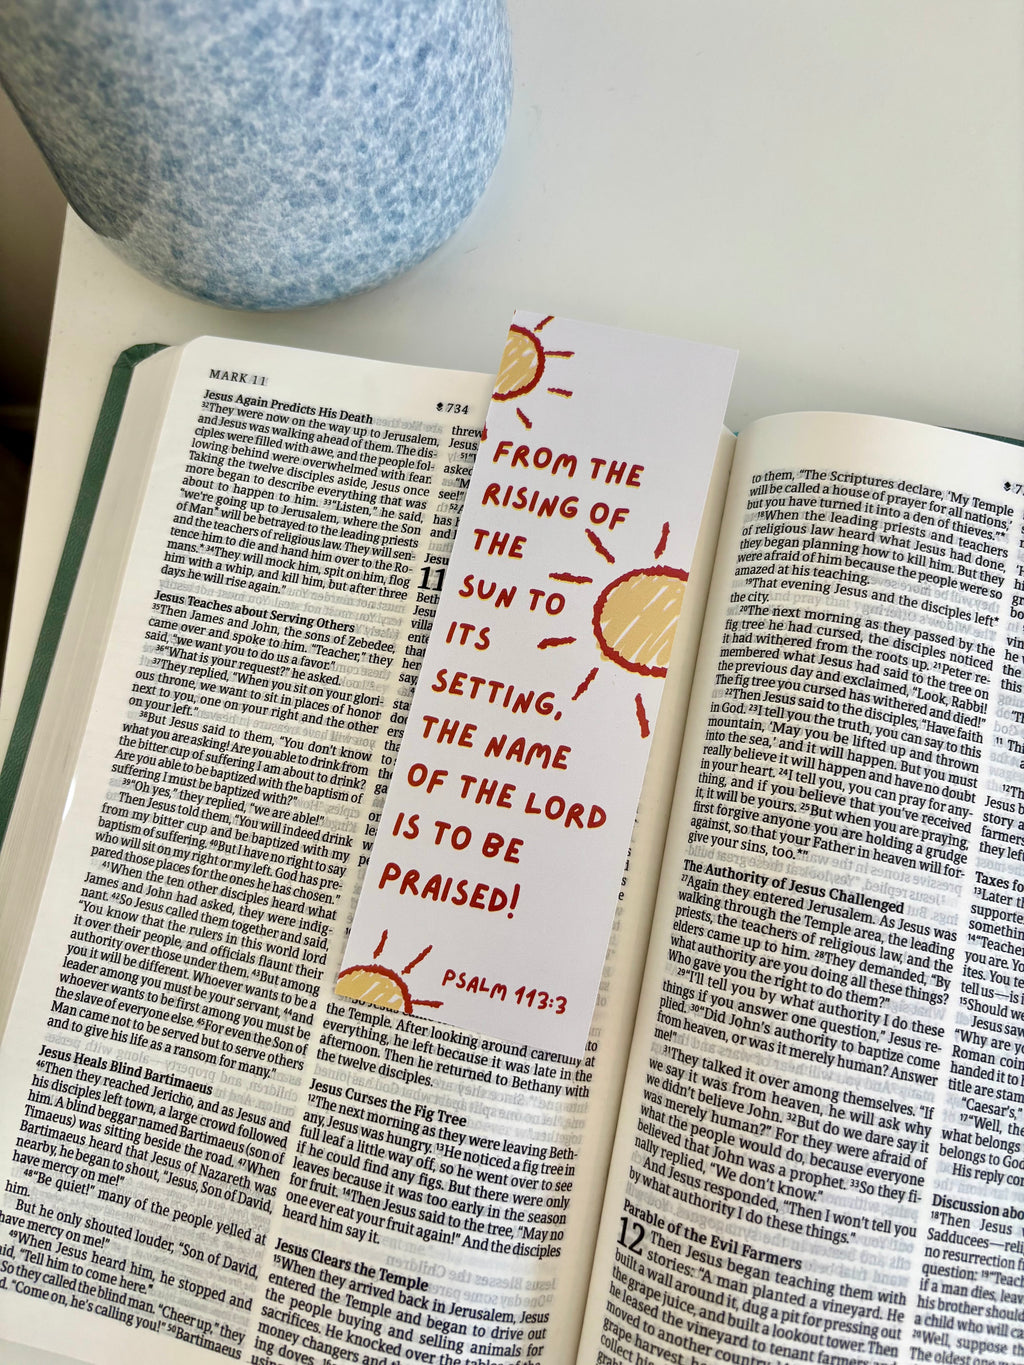 MARK 11
734
Jesus Again Predicts His Death
32They were now on the way up to Jerusalem,
and Jesus was walking ahead of them. The dis-
ciples were filled with awe, and the people fol-
lowing behind were overwhelmed with fear.
Taking the twelve disciples aside, Jesus once
more began to describe everything that was
about to happen to him. 33"Listen," he said,
"we're going up to Jerusalem, where the Son
of Man* will be betrayed to the leading priests
and the teachers of religious law. They will sen-
tence him to die and hand him over to the Ro-
mans.* 34They will mock him, spit on him, flog
him with a whip, and kill him, but after three
days he will rise again."
Jesus Teaches about Serving Others
35Then James and John, the sons of Zebedee,
came over and spoke to him. "Teacher," they
said, "we want you to do us a favor."
36"What is your request?" he asked.
37They replied, "When you sit on your glori-
ous throne, we want to sit in places of honor
next to you, one on your right and the other
on your left."
38But Jesus said to them, "You don't know
what you are asking! Are you able to drink from
the bitter cup of suffering I am about to drink?
Are you able to be baptized with the baptism of
suffering I must be baptized with?"
39"Oh yes," they replied, "we are able!"
Then Jesus told them, "You will indeed drink
from my bitter cup and be baptized with my
baptism of suffering. 40But I have no right to say
who will sit on my right or my left. God has pre-
pared those places for the ones he has chosen."
41When the ten other disciples heard what
James and John had asked, they were indig-
nant. 42So Jesus called them together and said,
"You know that the rulers in this world lord
it over their people, and officials flaunt their
authority over those under them. 43But among
you it will be different. Whoever wants to be a
leader among you must be your servant, 44and
whoever wants to be first among you must be
the slave of everyone else. 45For even the Son of
Man came not to be served but to serve others
and to give his life as a ransom for many."
Jesus Heals Blind Bartimaeus
46Then they reached Jericho, and as Jesus and
his disciples left town, a large crowd followed
him. A blind beggar named Bartimaeus (son of
Timaeus) was sitting beside the road. 47When
Bartimaeus heard that Jesus of Nazareth was
nearby, he began to shout, "Jesus, Son of David,
have mercy on me!"
48"Be quiet!" many of the people yelled at
him.
But he only shouted louder, "Son of David,
have mercy on me!"
49When Jesus heard him, he stopped and
said, "Tell him to come here."
So they called the blind man. "Cheer up," they
"Come on, he's calling you!" 50Bartimaeus
threw
Jesus
11
FROM THE
RISING OF
THE
SUN TO
ITS
SETTING,
THE NAME
OF THE LORD
IS TO BE
PRAISED!
PSALM 113:3
the Temple. After looking around carefully at
everything, he left because it was late in the
afternoon. Then he returned to Bethany with
the twelve disciples.
Jesus Curses the Fig Tree
12The next morning as they were leaving Beth-
any, Jesus was hungry. 13He noticed a fig tree in
full leaf a little way off, so he went over to see
if he could find any figs. But there were only
leaves because it was too early in the season
for fruit. 14Then Jesus said to the tree, "May no
one ever eat your fruit again!" And the disciples
heard him say it.
Jesus Clears the Temple
15When they arrived back in Jerusalem, Jesus
entered the Temple and began to drive out
the people buying and selling animals for
sacrifices. He knocked over the tables of the
money changers and the
to them, "The Scriptures declare, 'My Temple
will be called a house of prayer for all nations,'
but you have turned it into a den of thieves."*
18When the leading priests and teachers
of religious law heard what Jesus had done,
they began planning how to kill him. But they
were afraid of him because the people were so
amazed at his teaching.
19That evening Jesus and the disciples left*
the city.
20The next morning as they passed by the
fig tree he had cursed, the disciples noticed
it had withered from the roots up. 21Peter re-
membered what Jesus had said to the tree on
the previous day and exclaimed, "Look, Rabbi!
The fig tree you cursed has withered and died!"
22Then Jesus said to the disciples, "Have faith
in God. 23I tell you the truth, you can say to this
mountain, 'May you be lifted up and thrown
into the sea,' and it will happen. But you must
really believe it will happen and have no doubt
in your heart. 24I tell you, you can pray for any-
thing, and if you believe that you've received
it, it will be yours. 25But when you are praying,
first forgive anyone you are holding a grudge
against, so that your Father in heaven will for-
give your sins, too.*"
The Authority of Jesus Challenged
27Again they entered Jerusalem. As Jesus was
walking through the Temple area, the leading
priests, the teachers of religious law, and the
elders came up to him. 28They demanded, "By
what authority are you doing all these things?
Who gave you the right to do them?"
29"I'll tell you by what authority I do these
things if you answer one question," Jesus re-
plied. 30"Did John's authority to baptize come
from heaven, or was it merely human? Answer
me!"
31They talked it over among themselves. "If
we say it was from heaven, he will ask why
we didn't believe John. 32But do we dare say it
was merely human?" For they were afraid of
what the people would do, because everyone
believed that John was a prophet. 33So they fi-
nally replied, "We don't know."
And Jesus responded, "Then I won't tell you
by what authority I do these things."
Parable of the Evil Farmers
12 Then Jesus began teaching them with
stories: "A man planted a vineyard. He
built a wall around it, dug a pit for pressing out
the grape juice, and built a lookout tower. Then
he leased the vineyard to tenant farmers and
moved to another country.
Taxes fo
13Later th
supporte
something
14"Teacher
you are. Yo
ites. You te
tell us—is i
15Should we
Jesus saw
"Why are yo
Roman coin
handed it to h
title are stam
"Caesar's,"
17"Well, the
what belongs
belongs to God
His reply con
Discussion abo
18Then Jesus
Sadducees—reli
no resurrection f
question: 19"Teac
if a man dies, leav
his brother should
a child who will ca
20Well, suppose th
The oldest one m